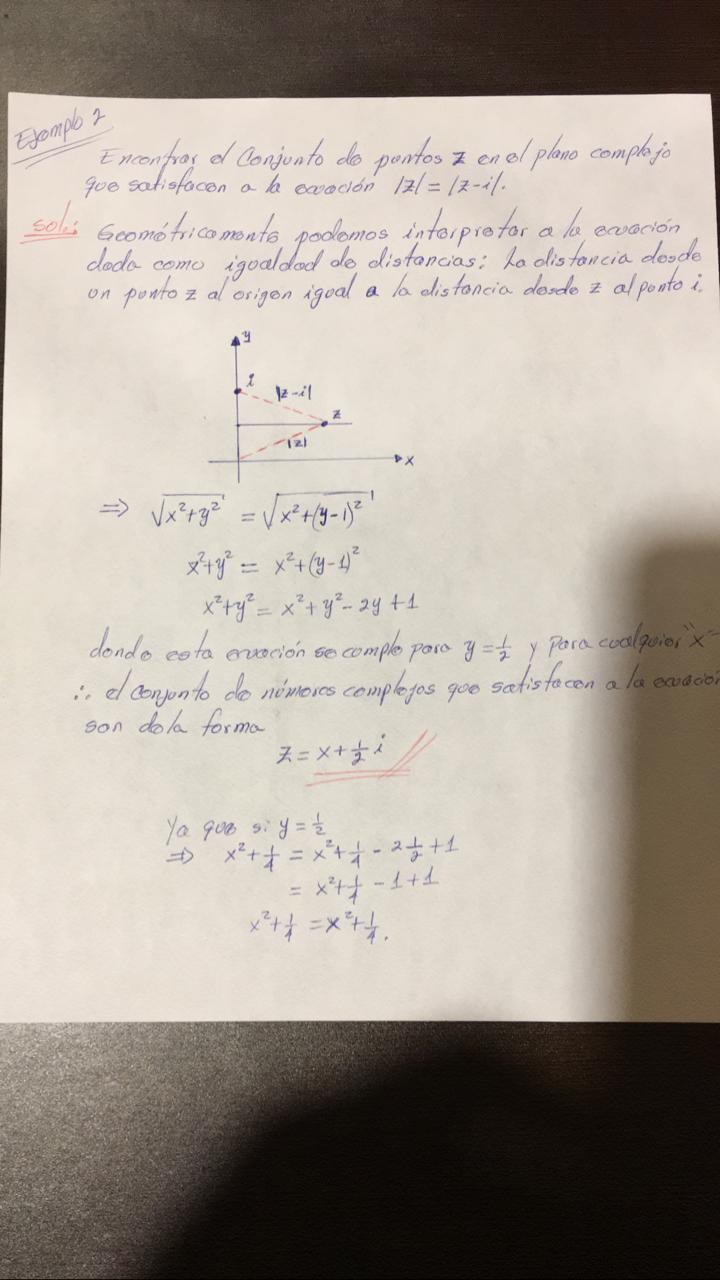 Ejemplo 2
Encontrar el Conjunto de puntos z en el plano complejo
que satisfacen a la ecuación |z| = |z-i|.
sol.: Geométricamente podemos interpretar a la ecuación
dada como igualdad de distancias: La distancia desde
un punto z al origen igual a la distancia desde z al punto i.
y
i
|z-i|
z
|z|
x
⇒ √(x²+y²) = √(x²+(y-1)²)
x²+y² = x²+(y-1)²
x²+y² = x²+y²-2y+1
donde esta ecuación se cumple para y = 1/2 y para cualquier "x"
∴ el conjunto de números complejos que satisfacen a la ecuación
son de la forma
z = x + 1/2 i
Ya que si y = 1/2
⇒ x² + 1/4 = x² + 1/4 - 2 1/2 + 1
= x² + 1/4 - 1 + 1
x² + 1/4 = x² + 1/4.